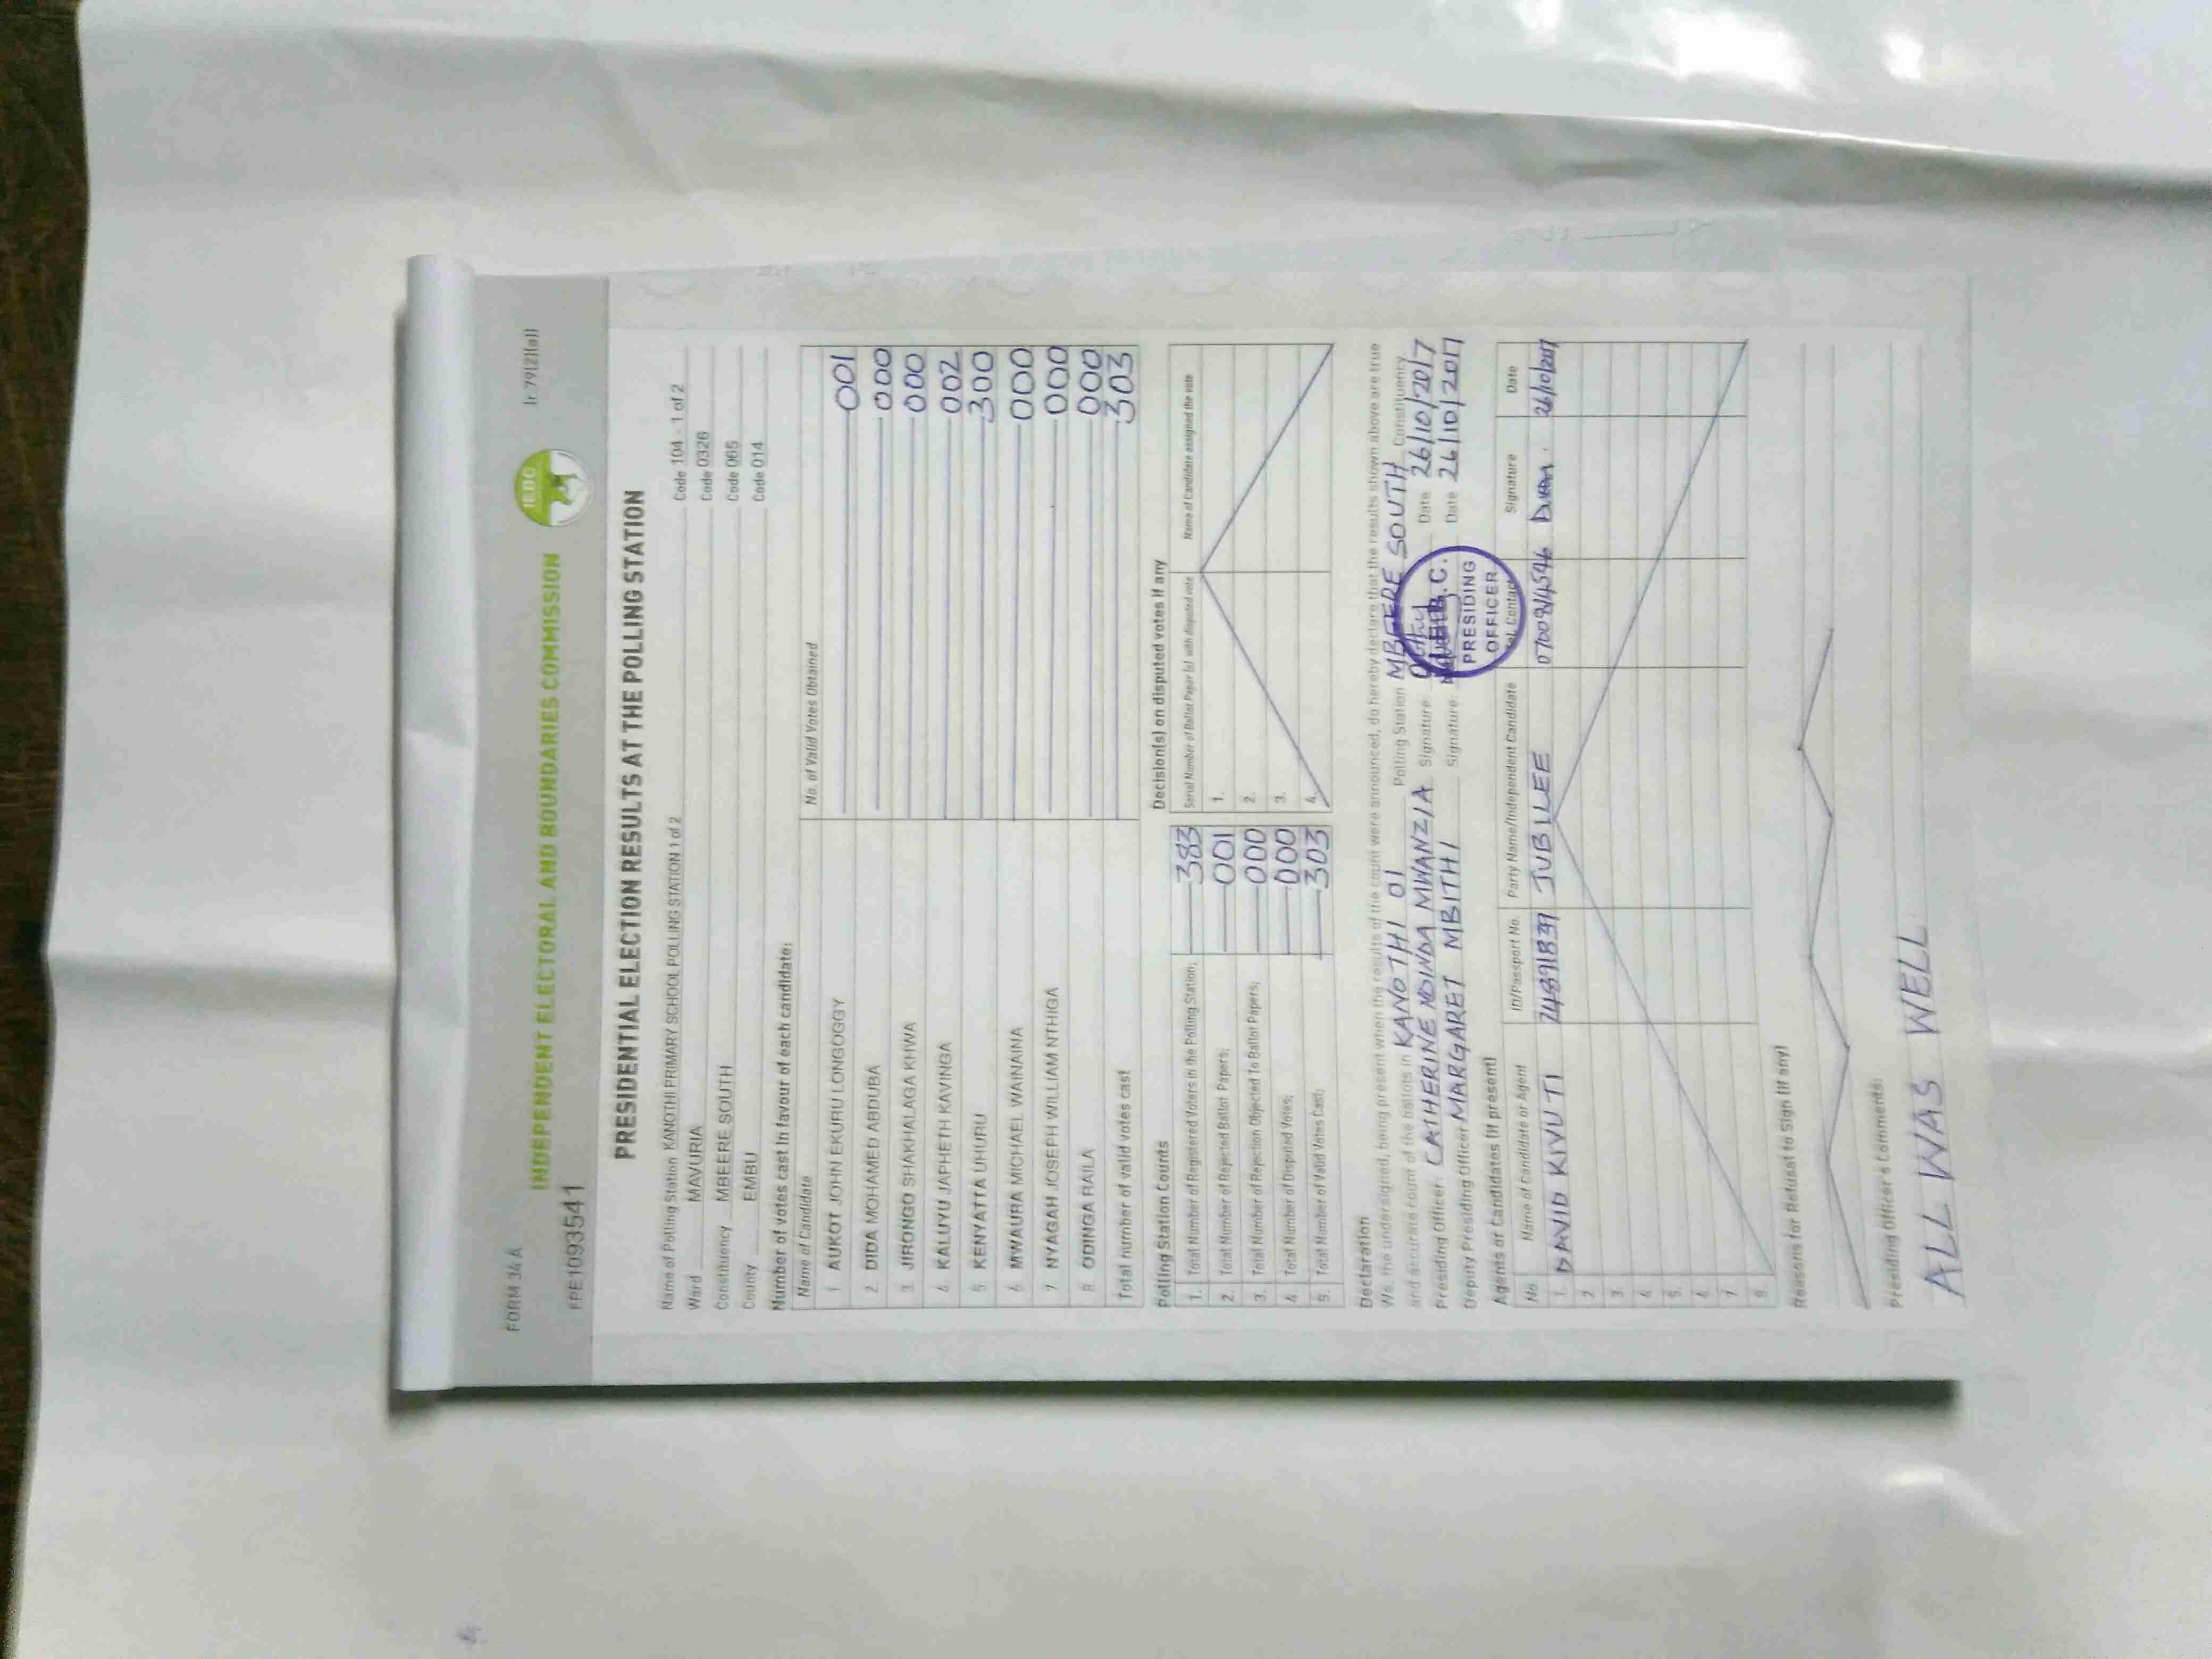 FORM 34A
INDEPENDENT ELECTORAL AND BOUNDARIES COMMISSION
IEBC
(r 79(2)(a))
FPE1093541
PRESIDENTIAL ELECTION RESULTS AT THE POLLING STATION
Name of Polling Station KANOTHI PRIMARY SCHOOL POLLING STATION 1 of 2 Code 104 - 1 of 2
Ward MAVURIA Code 0326
Constituency MBEERE SOUTH Code 065
County EMBU Code 014
Number of votes cast in favour of each candidate:
Name of Candidate No. of Valid Votes Obtained
1 AUKOT JOHN EKURU LONGOGGY 001
2 DIDA MOHAMED ABDUBA 000
3. JIRONGO SHAKHALAGA KHWA 000
4 KALUYU JAPHETH KAVINGA 002
5 KENYATTA UHURU 300
6 MWAURA MICHAEL WAINAINA 000
7 NYAGAH JOSEPH WILLIAM NTHIGA 000
8 ODINGA RAILA 000
Total number of valid votes cast 303
Polling Station Counts
1. Total Number of Registered Voters in the Polling Station; 383
2. Total Number of Rejected Ballot Papers; 001
3. Total Number of Rejection Objected To Ballot Papers; 000
4. Total Number of Disputed Votes; 000
5. Total Number of Valid Votes Cast; 303
Decision(s) on disputed votes if any
Serial Number of Ballot Paper (s) with disputed vote Name of Candidate assigned the vote
1.
2.
3.
4.
Declaration
We, the undersigned, being present when the results of the count were announced, do hereby declare that the results shown above are true
and accurate count of the ballots in KANOTHI 01 Polling Station MBEERE SOUTH Constituency.
Presiding Officer: CATHERINE NDINDA MWANZIA Signature: Date 26/10/2017
Deputy Presiding Officer MARGARET MBITHI Signature: Date 26/10/2017
I.E.B.C.
PRESIDING
OFFICER
Agents or Candidates (if present)
No Name of Candidate or Agent ID/Passport No. Party Name/Independent Candidate Tel. Contact Signature Date
1. DAVID KIVUTI JUBILEE 26/10/2017
2
3.
4
5.
6.
7
8.
Reasons for Refusal to Sign (if any)
Presiding Officer's Comments:
ALL WAS WELL